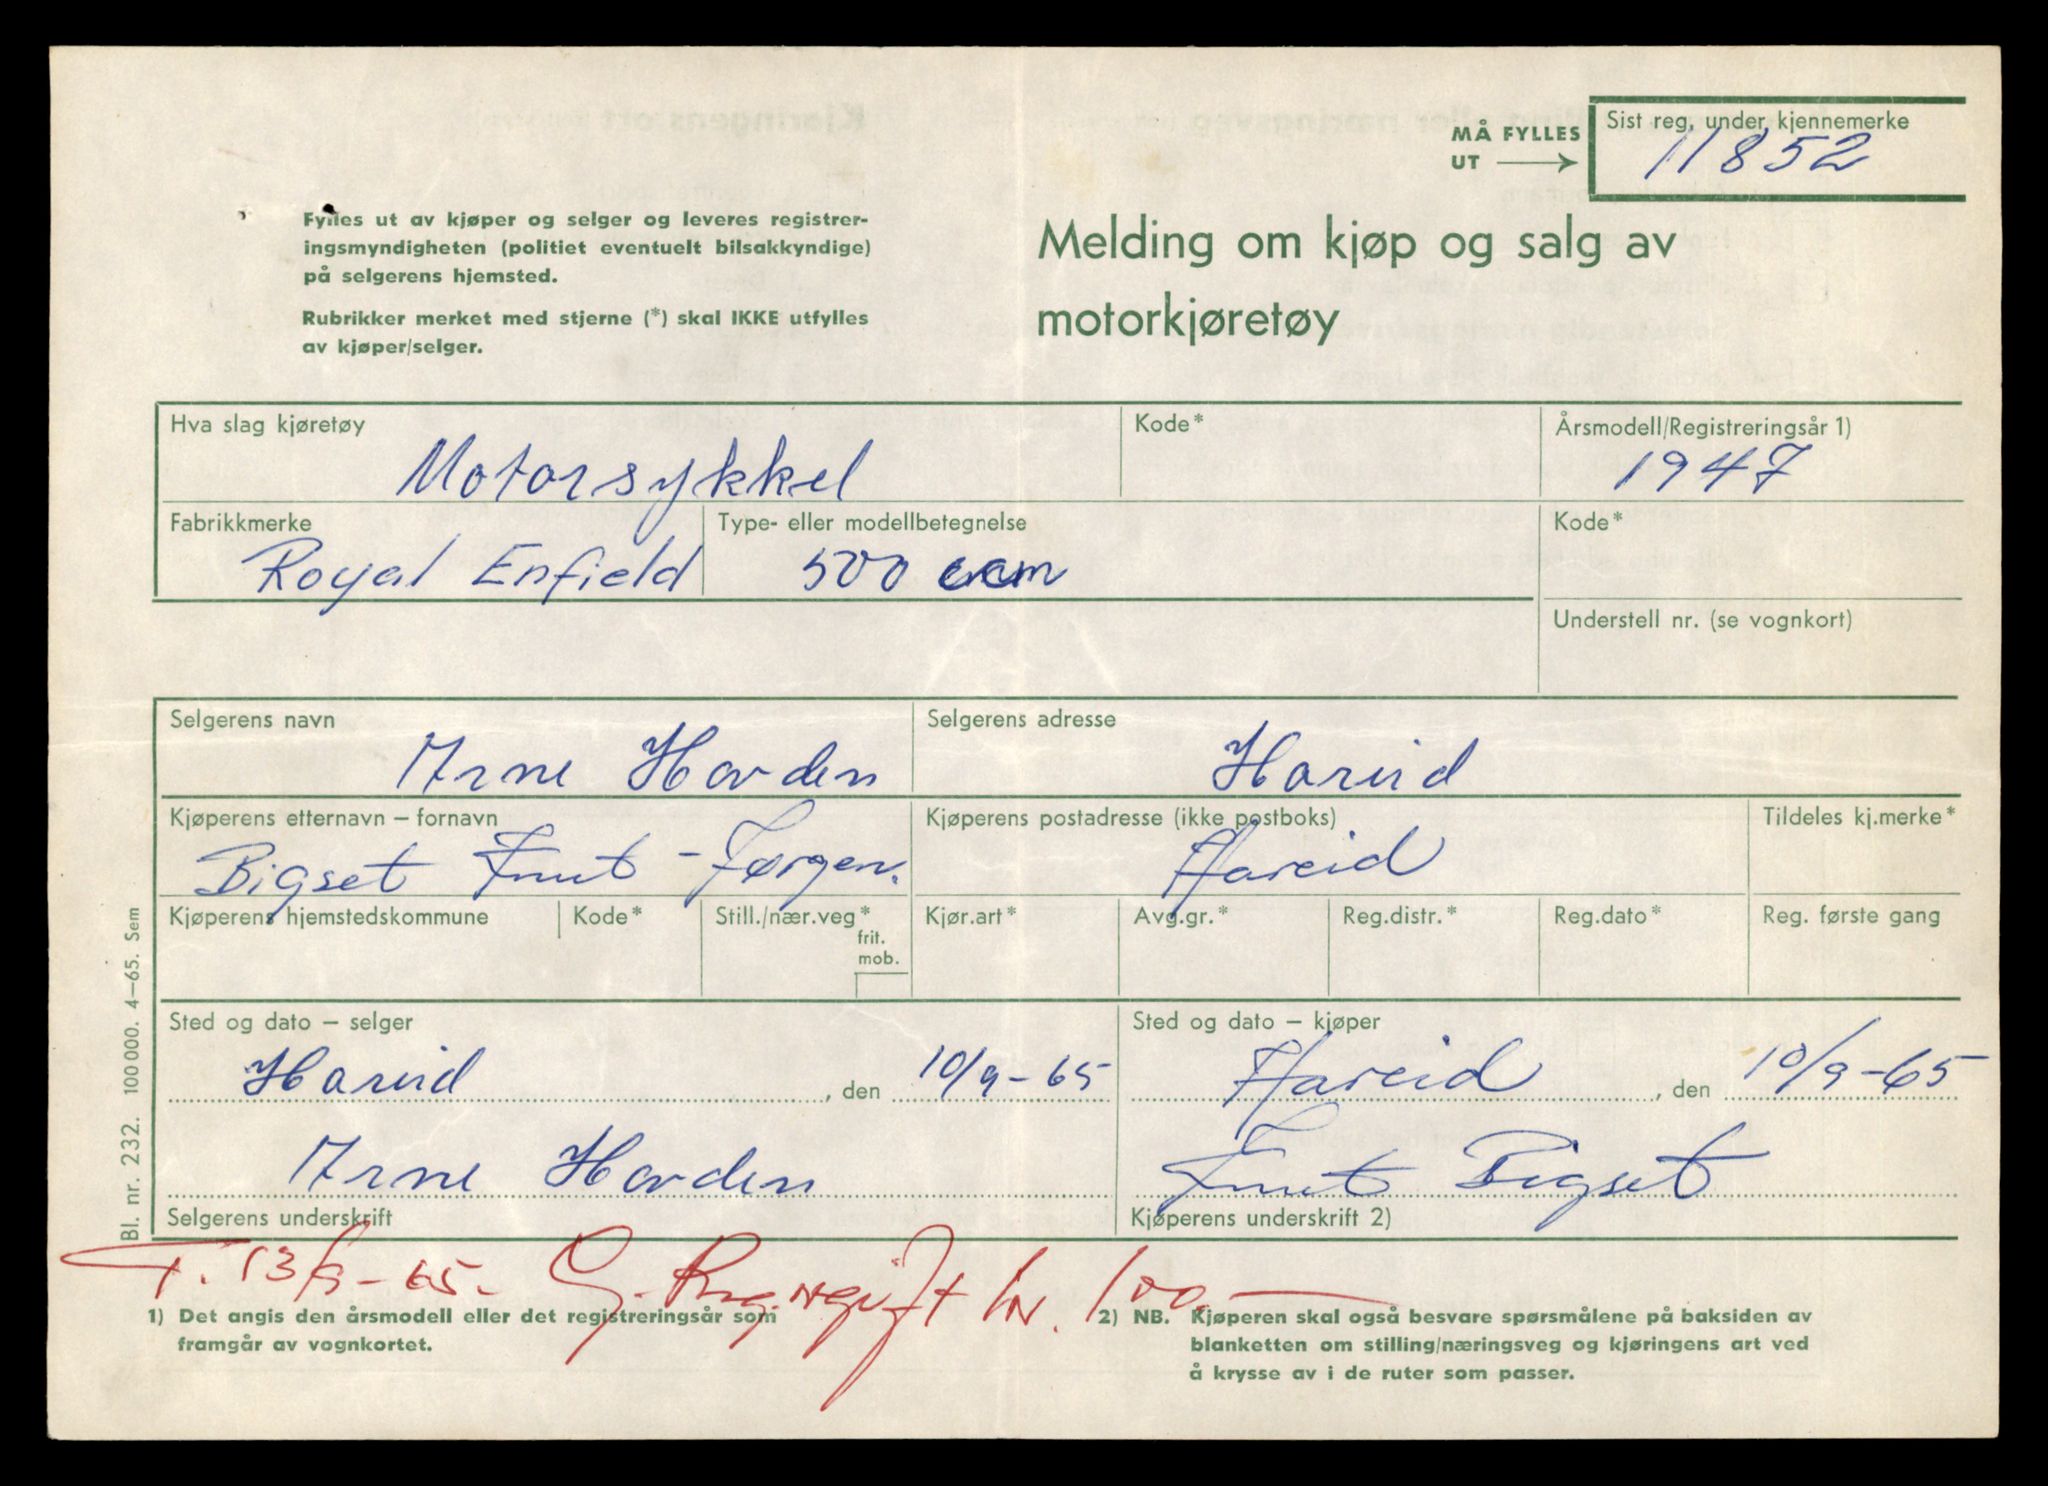 MÅ FYLLES
UT
Sist reg. under kjennemerke
11852
Fylles ut av kjøper og selger og leveres registrer-
ingsmyndigheten (politiet eventuelt bilsakkyndige)
på selgerens hjemsted.
Rubrikker merket med stjerne (*) skal IKKE utfylles
av kjøper/selger.
Melding om kjøp og salg av
motorkjøretøy
Hva slag kjøretøy
Motorsykkel
Kode*
Årsmodell/Registreringsår 1)
1947
Fabrikkmerke
Royal Enfield
Type- eller modellbetegnelse
500 ccm
Kode*
Understell nr. (se vognkort)
Selgerens navn
Arne Hovden
Selgerens adresse
Hareid
Kjøperens etternavn – fornavn
Bigset Knut - Jørgen.
Kjøperens postadresse (ikke postboks)
Hareid
Tildeles kj.merke*
Kjøperens hjemstedskommune
Kode*
Still./nær.veg*
frit.
mob.
Kjør.art*
Avg.gr.*
Reg.distr.*
Reg.dato*
Reg. første gang
Sted og dato – selger
Hareid, den 10/9-65
Arne Hovden
Selgerens underskrift
Sted og dato – kjøper
Hareid, den 10/9-65
Knut Bigset
Kjøperens underskrift 2)
Bl. nr. 232. 100 000. 4–65. Sem
T. 13/9-65. Reg.avgift kr. 100,-
1) Det angis den årsmodell eller det registreringsår som
framgår av vognkortet.
2) NB. Kjøperen skal også besvare spørsmålene på baksiden av
blanketten om stilling/næringsveg og kjøringens art ved
å krysse av i de ruter som passer.